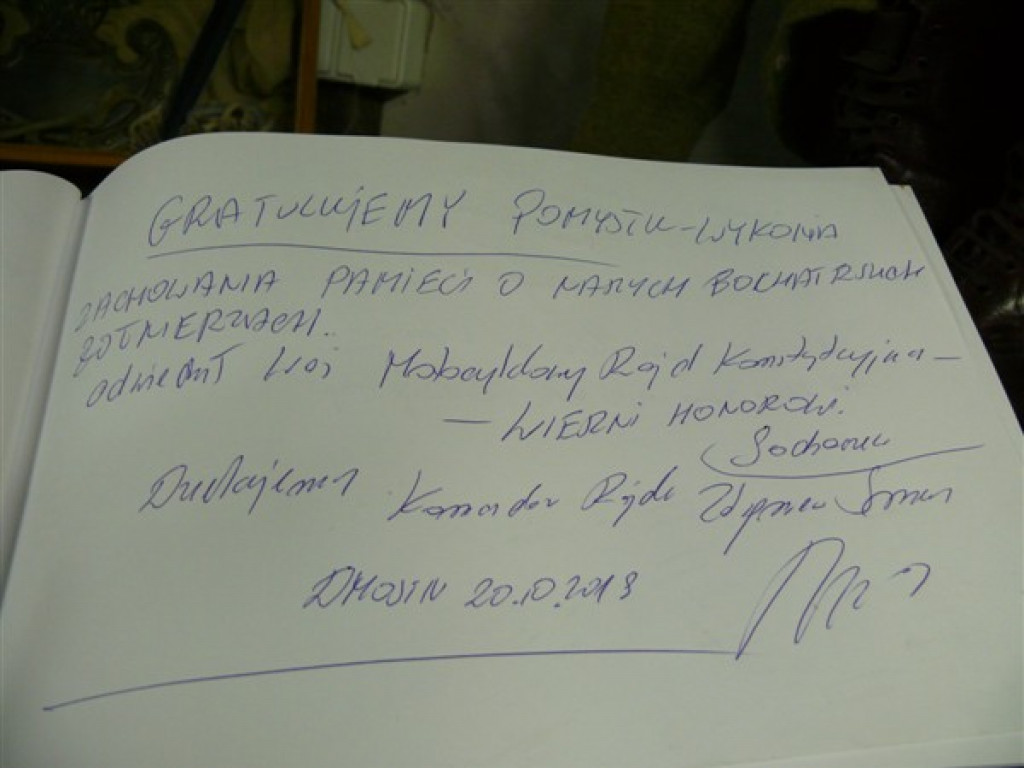 GRATULUJEMY POMYSŁU - WYKONIA
ZACHOWANIA PAMIĘCI O NASZYCH BOCHATRSKICH
ŻOŁNIERZACH.
odwiedził Was Motocyklowy Rajd Konstytucyjna —
— WIERNI HONOROWI.
Dziękujemy Komandor Rajdu
20.10.2013